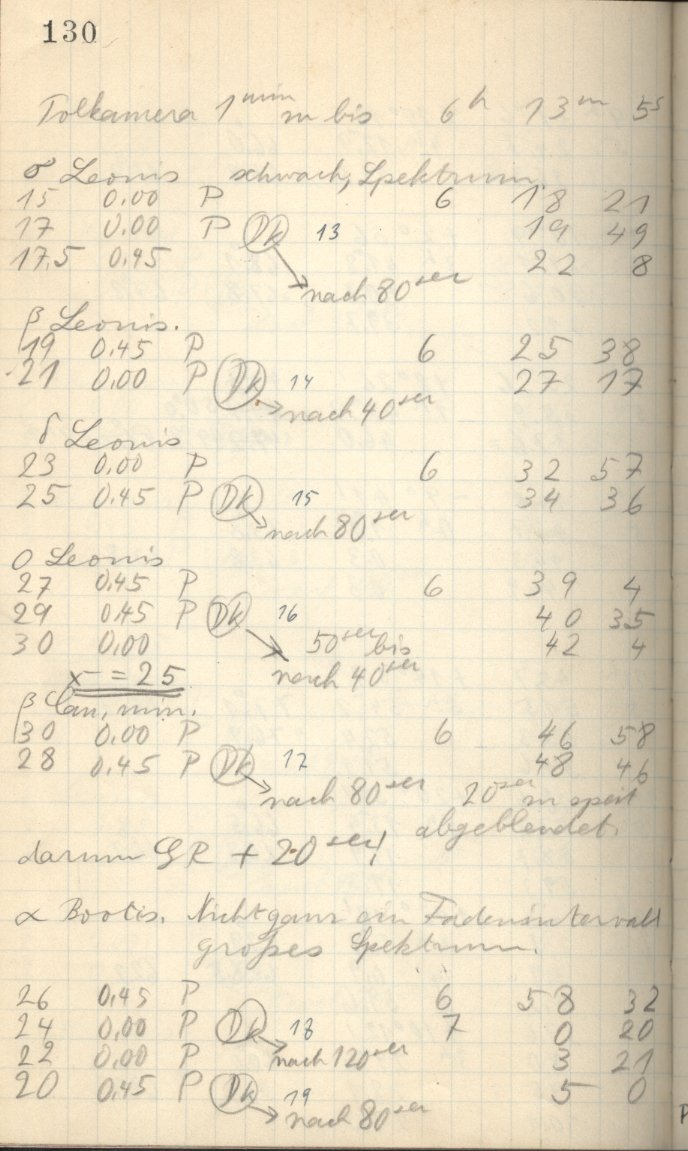 130
Tolkamera 1 min zu bis 6h 13m 5s
σ Leonis schwach, Spektrum
15 0.00 P 6 18 21
17 0.00 P Dk 13 19 49
17,5 0.45 22 8
nach 80 sec
β Leonis.
19 0.45 P 6 25 38
21 0.00 P Dk 14 27 17
nach 40 sec
δ Leonis
23 0.00 P 6 32 57
25 0.45 P Dk 15 34 36
nach 80 sec
o Leonis
27 0.45 P 6 39 4
29 0.45 P Dk 16 40 35
30 0.00 50 sec bis 42 4
x = 25 nach 40 sec
β Can. min.
30 0.00 P 6 46 58
28 0.45 P Dk 17 48 46
nach 80 sec 20 sec zu spät
abgeblendet.
darum GR + 20 sec!
α Bootis. Nicht ganz ein Fadenintervall
großes Spektrum.
26 0.45 P 6 58 32
24 0.00 P Dk 18 7 0 20
22 0.00 P nach 120 sec 3 21
20 0.45 P Dk 19 5 0
nach 80 sec